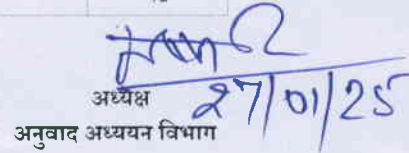 अध्यक्ष
27/01/25
अनुवाद अध्ययन विभाग